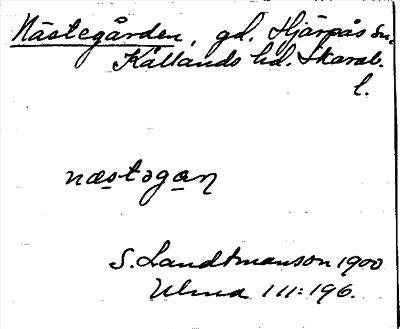 Nästegården, gd. Hjärpås sn,
Kållands hd. Skarab.
l.
næstəgan
S. Landtmanson 1900
Ulma 111:196.